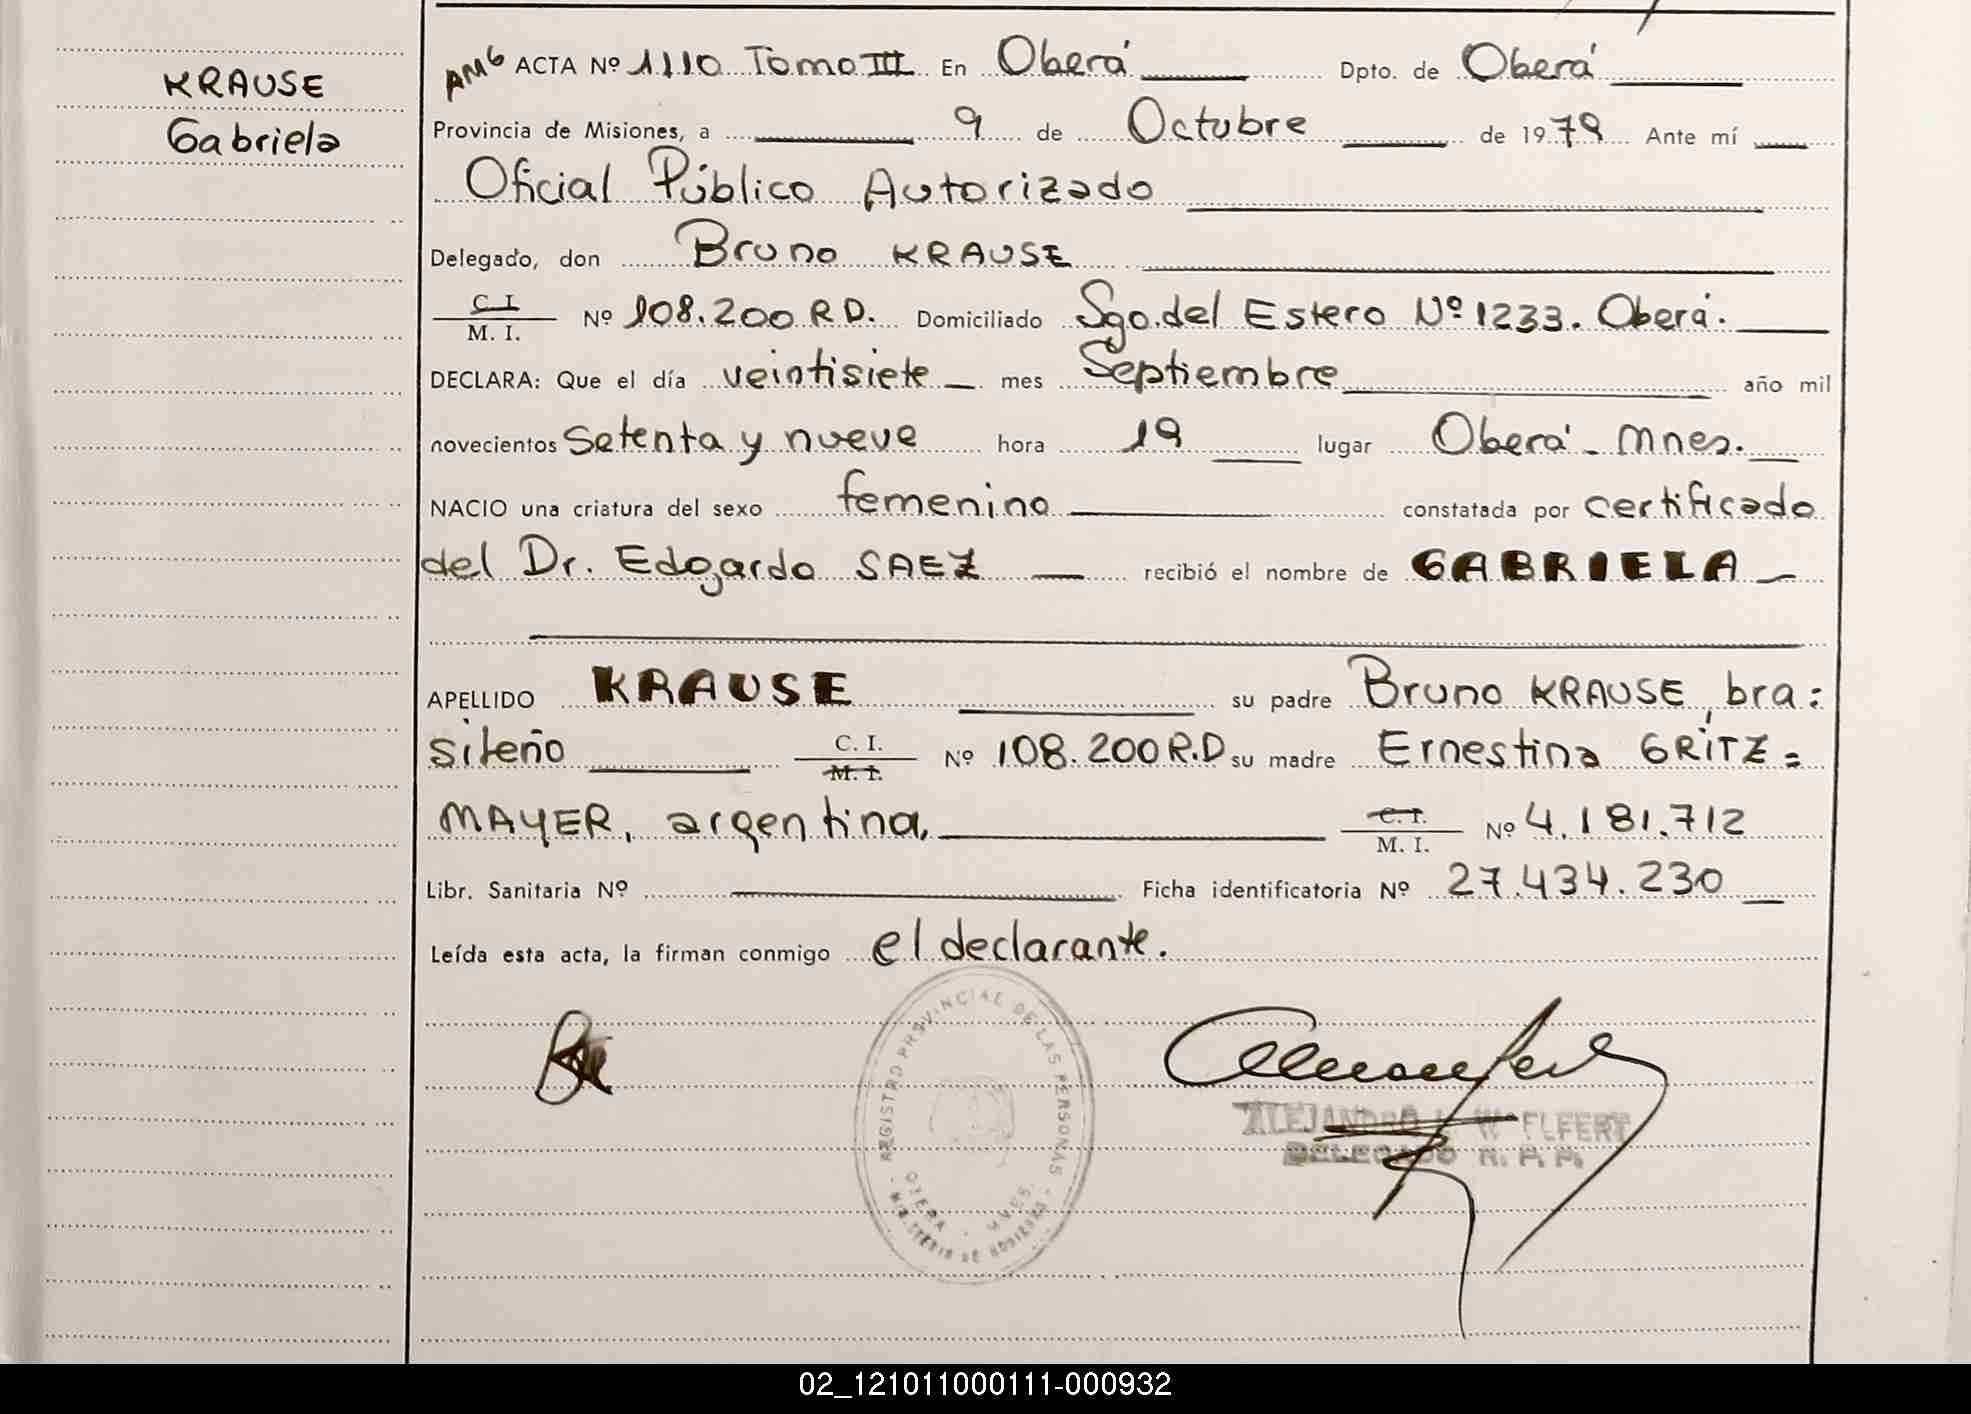 KRAUSE
Gabriela
AMG ACTA Nº 1110 Tomo III En Oberá Dpto. de Oberá
Provincia de Misiones, a 9 de Octubre de 1979 Ante mí
Oficial Público Autorizado
Delegado, don Bruno KRAUSE
C. I.
M. I. Nº 108.200 R.D. Domiciliado Sgo. del Estero Nº 1233. Oberá.
DECLARA: Que el día veintisiete mes Septiembre año mil
novecientos setenta y nueve hora 19 lugar Oberá - Mnes.
NACIO una criatura del sexo femenino constatada por certificado
del Dr. Edgardo SAEZ recibió el nombre de GABRIELA
APELLIDO KRAUSE su padre Bruno KRAUSE, bra=
sileño C. I. M. I. Nº 108.200 R.D su madre Ernestina GRITZ=
MAYER, argentina, C. I. M. I. Nº 4.181.712
Libr. Sanitaria Nº Ficha identificatoria Nº 27.434.230
Leída esta acta, la firman conmigo el declarante.
REGISTRO PROVINCIAL DE LAS PERSONAS
OBERA - MNES.
MINISTERIO DE GOBIERNO
ALEJANDRO
DELEGADO R. P. P.
02_121011000111-000932